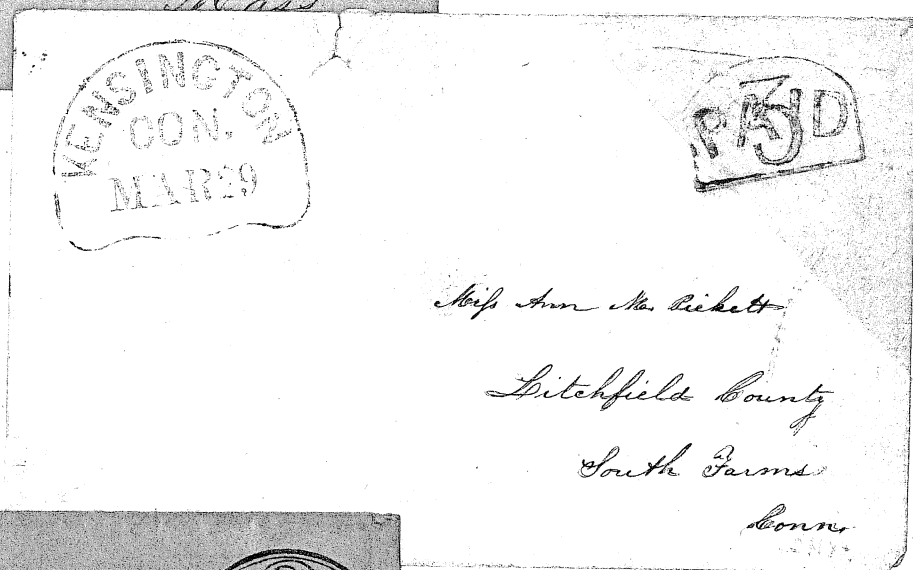 Mass
KENSINGTON
CON.
MAR 29
PAID
3
Miss Ann M. Pickett
Litchfield County
South Farms
Conn.